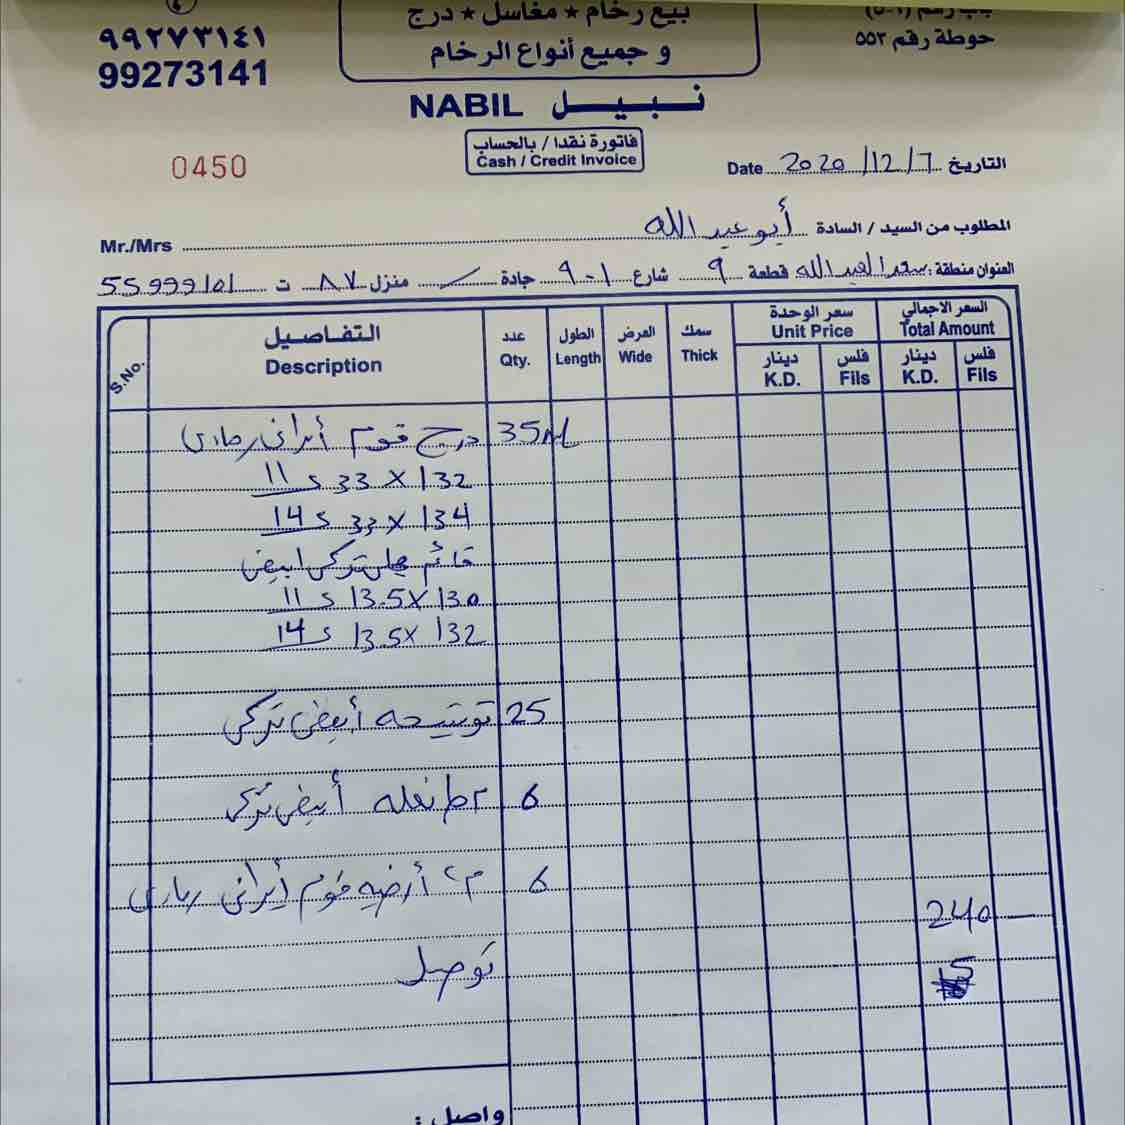 بيع رخام ★ مغاسل ★ درج
و جميع أنواع الرخام
٩٩٢٧٣١٤١
99273141
حوطة رقم ٥٥٢
NABIL نبيل
فاتورة نقدا / بالحساب
Cash / Credit Invoice
0450
Date 2020/12/7 التاريخ
المطلوب من السيد / السادة أبو عبد الله
Mr./Mrs
العنوان منطقة: سعد العبدالله قطعة ٩ شارع ١-٩ جادة / منزل ٨٧ ت 55999101
S.No. التفاصيل Description عدد Qty. الطول Length العرض Wide سمك Thick سعر الوحدة Unit Price السعر الاجمالي Total Amount
دينار K.D. فلس Fils دينار K.D. فلس Fils
درج فوم أيراني رمادي 35M
11 s 33 x 132
14 s 33 x 134
قائم تركي ابيض
11 s 13.5 x 130
14 s 13.5 x 132
أبيض تركي 25
٢ط نعله أبيض تركي 6
م٢ أرضيه فوم أيراني رمادي 6
240 —
توصيل 15
واصل :